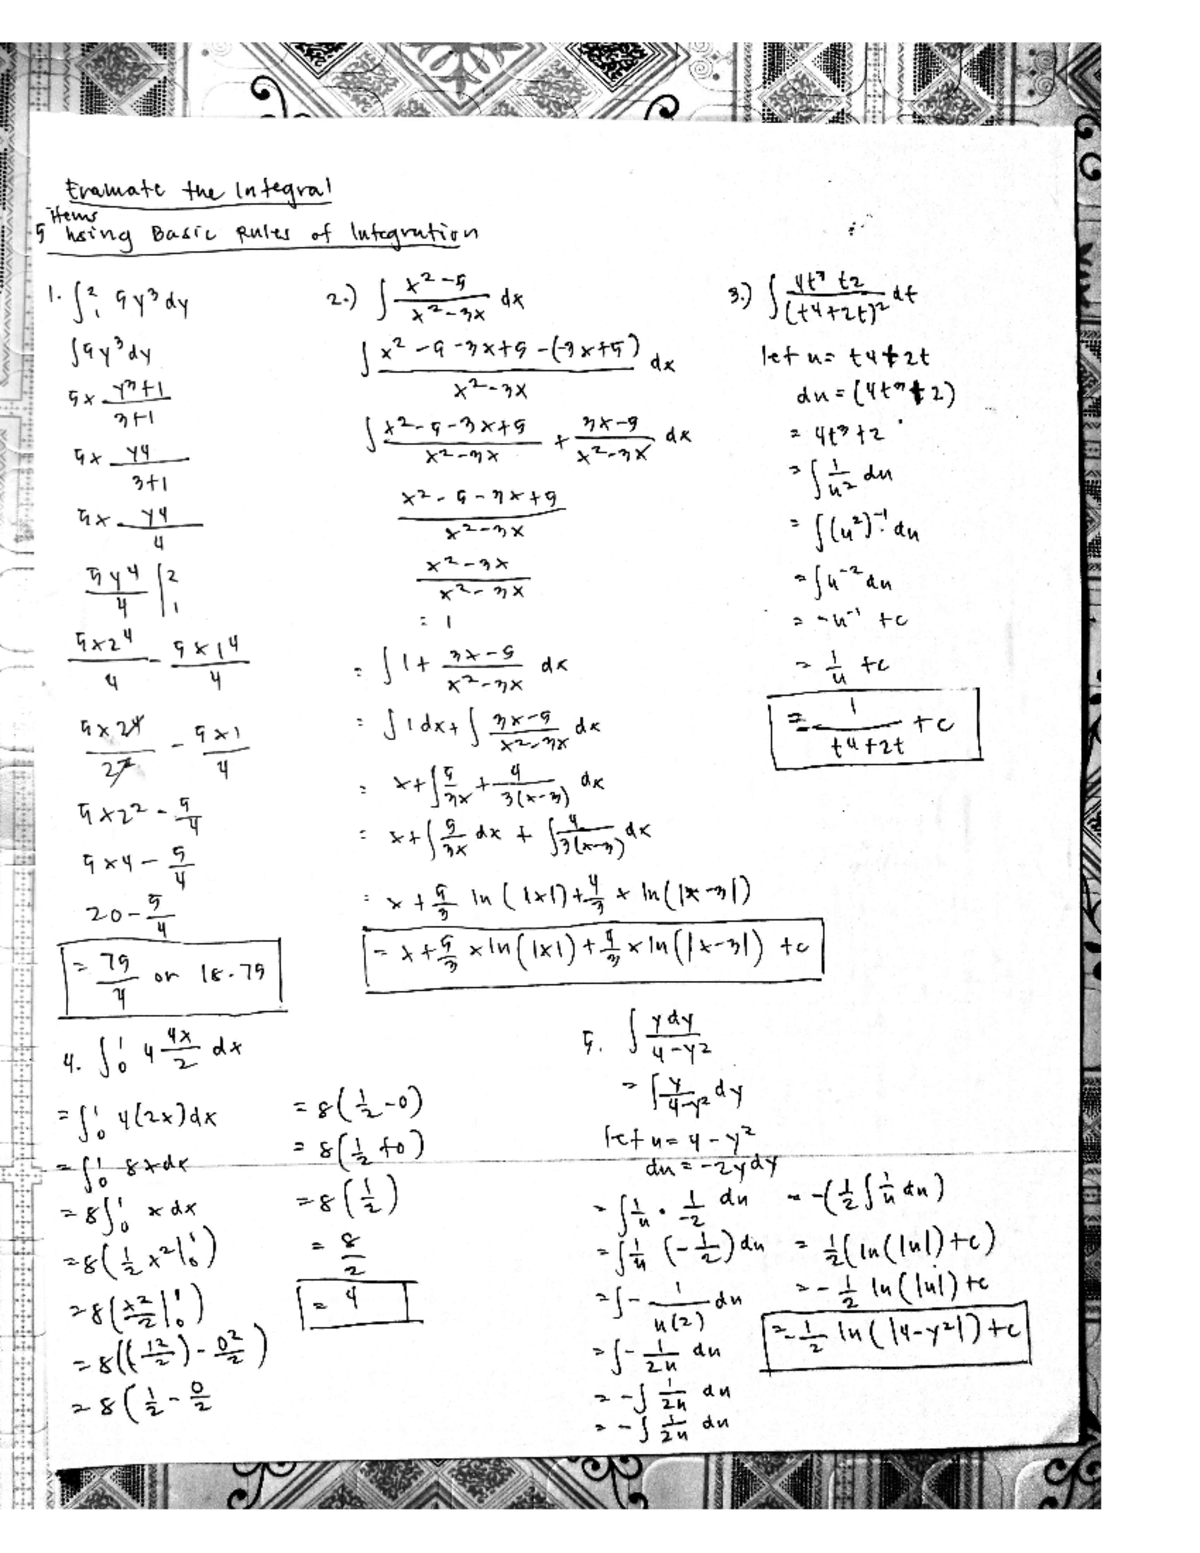 Evaluate the Integral
Items
5 Using Basic Rules of Integration
1. ∫₁² 5y³dy
∫5y³dy
5x y³+1 / 3+1
5x y4 / 3+1
5x y4 / 4
5y4 / 4 |₁²
5x2⁴ / 4 - 5x1⁴ / 4
5x2⁴ / 2² - 5x1 / 4
5x2² - 5/4
5x4 - 5/4
20 - 5/4
= 75/4 or 18.75
2.) ∫ x²-5 / x²-3x dx
∫ x²-5-3x+5-(-3x+5) / x²-3x dx
∫ x²-5-3x+5 / x²-3x + 3x-5 / x²-3x dx
x²-5-3x+5 / x²-3x
x²-3x / x²-3x
= 1
= ∫ 1 + 3x-5 / x²-3x dx
= ∫ 1dx + ∫ 3x-5 / x²-3x dx
= x + ∫ 5/3x + 4 / 3(x-3) dx
= x + ∫ 5/3x dx + ∫ 4 / 3(x-3) dx
= x + 5/3 ln(|x|) + 4/3 x ln(|x-3|)
= x + 5/3 x ln(|x|) + 4/3 x ln(|x-3|) + c
3.) ∫ 4t³ t2 / (t4+2t)² dt
let u = t4+2t
du = (4t³+2)
= 4t³+2
= ∫ 1/u² du
= ∫(u²)⁻¹ du
= ∫u⁻² du
= -u⁻¹ +c
= 1/u +c
= - 1 / t4+2t + c
4. ∫₀¹ 4 4x/2 dx
= ∫₀¹ 4(2x)dx
= ∫₀¹ 8xdx
= 8∫₀¹ x dx
= 8(1/2 x²|₀¹)
= 8(x²/2 |₀¹)
= 8((1²/2) - 0²/2)
= 8(1/2 - 0/2
= 8(1/2 - 0)
= 8(1/2 + 0)
= 8(1/2)
= 8/2
= 4
5. ∫ y dy / 4-y²
= ∫ y / 4-y² dy
let u = 4-y²
du = -2y dy
= ∫ 1/u · 1/-2 du
= ∫ 1/u (-1/2) du
= ∫ - 1 / u(2) du
= ∫ - 1/2u du
= - ∫ 1/2u du
= - ∫ 1/2u du
= -(1/2 ∫ 1/u du)
= 1/2(ln(|u|)+c)
= - 1/2 ln(|u|)+c
= - 1/2 ln(|4-y²|)+c